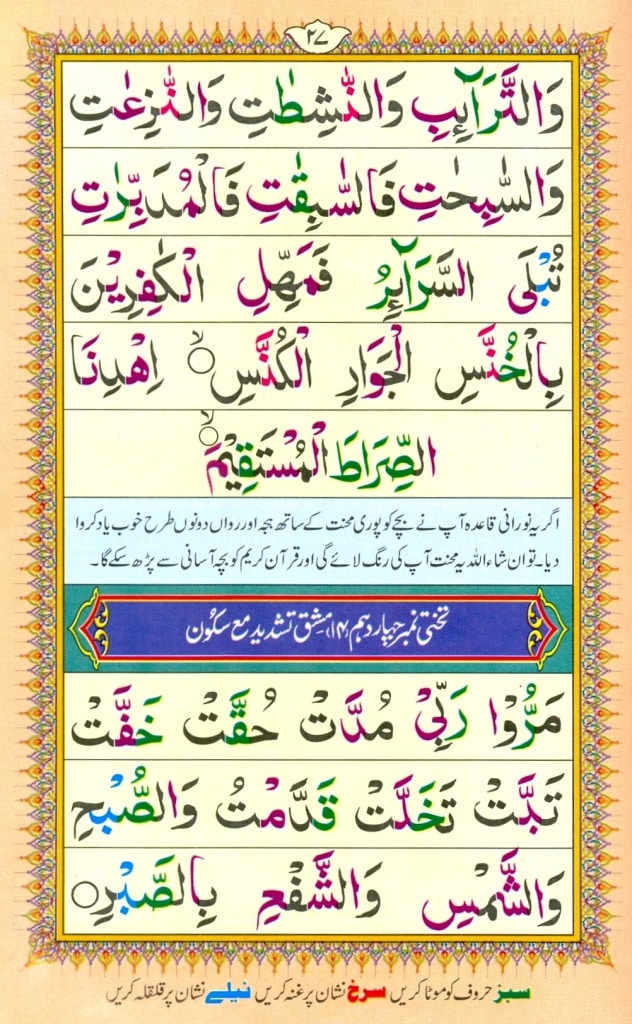 ۲۷
وَالتَّرَآئِبِ وَالنّٰشِطٰتِ وَالنّٰزِعٰتِ
وَالسّٰبِحٰتِ فَالسّٰبِقٰتِ فَالْمُدَبِّرٰتِ
تُبْلَى السَّرَآئِرُ فَمَهِّلِ الْكٰفِرِيْنَ
بِالْخُنَّسِ الْجَوَارِ الْكُنَّسِۙ اِهْدِنَا
الصِّرَاطَ الْمُسْتَقِيْمَۙ
اگر یہ نورانی قاعدہ آپ نے بچے کو پوری محنت کے ساتھ ہجہ اور رواں دونوں طرح خوب یاد کروا
دیا۔ تو ان شاء اللہ یہ محنت آپ کی رنگ لائے گی اور قرآن کریم کو بچہ آسانی سے پڑھ سکے گا۔
تختی نمبر چہاردہم (۱۴) مشق تشدید مع سکُون
مَرُّوْا رَبِّيْ مُدَّتْ حُقَّتْ خَفَّتْ
تَبَّتْ تَخَلَّتْ قَدَّمْتُ وَالصُّبْحِ
وَالشَّمْسِ وَالشَّفْعِ بِالصَّبْرِ○
سبز حروف کو موٹا کریں سرخ نشان پر غنہ کریں نیلے نشان پر قلقلہ کریں